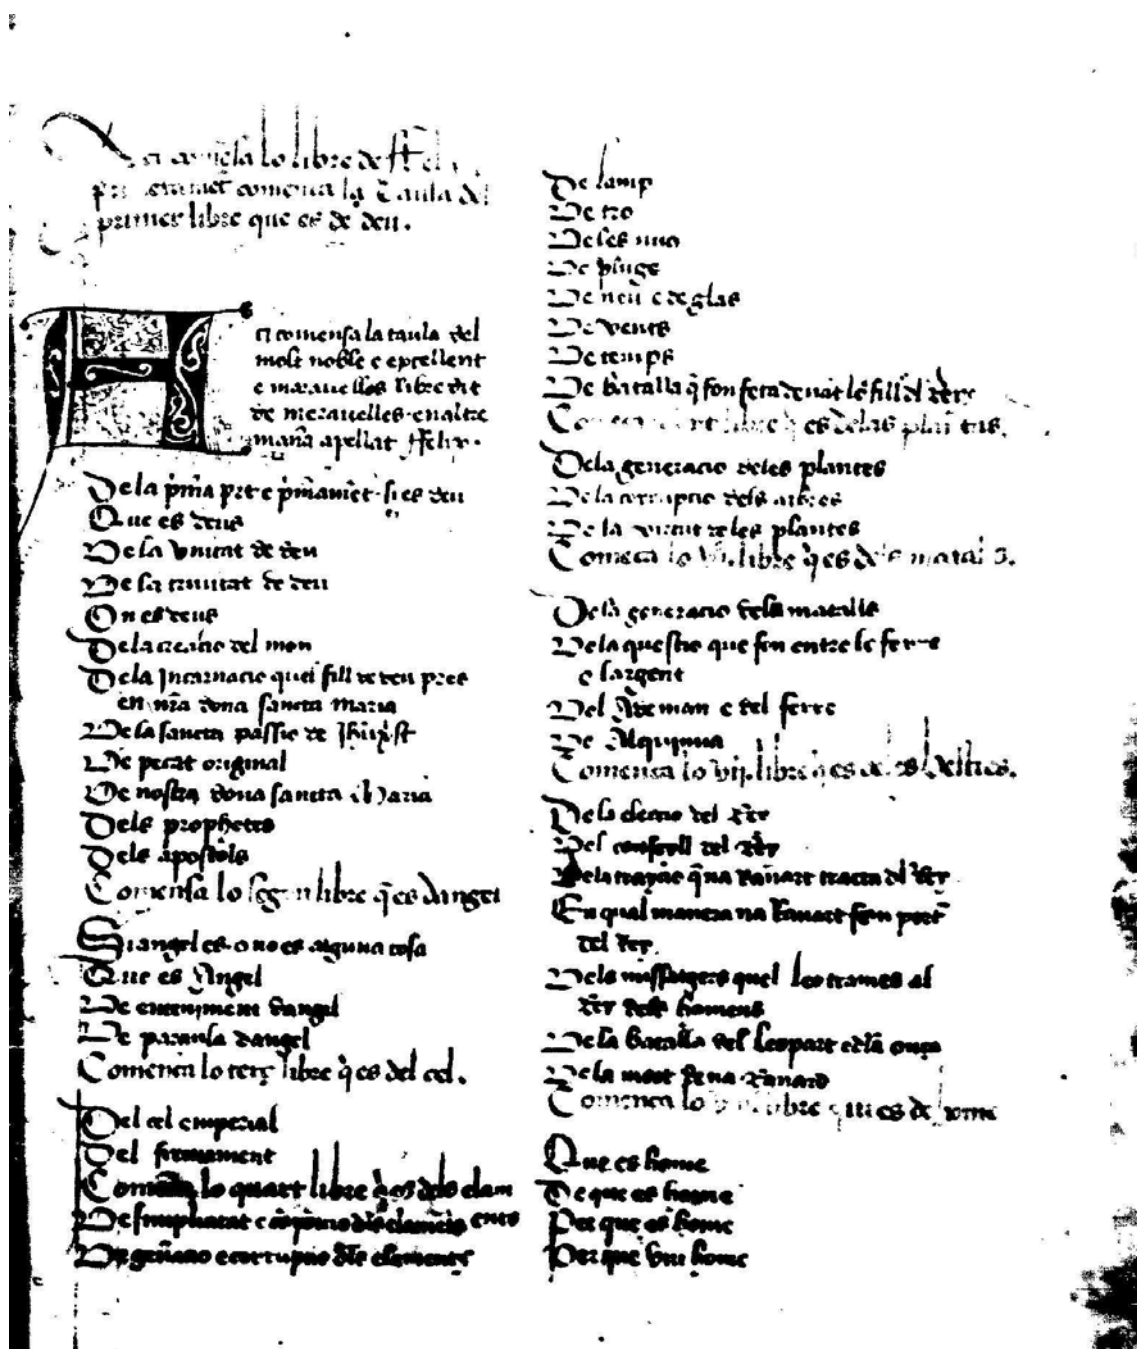 comẽsa lo libre de ffel
comensa la Taula del
primer libre que es de deu.
Aci comensa la taula del
molt noble e excellent
e marauellos libre dit
de merauelles. en altre
maña apellat ffelix.
De la pᵢma prt e pᵢmamẽt. si es deu
Que es deus
De la vnitat de deu
De la trinitat de deu
On es deus
De la creacio del mon
De la Incarnacio quel fill de deu pres
en nrã dona sancta maria
De la sancta passio de
De peccat original
De nostra dona sancta Maria
Dels prophetes
Dels apostols
Comensa lo segon libre q̃ es dangel
Si angel es o no es alguna cosa
Que es Angel
De enteniment dangel
De paraula dangel
Comença lo terç libre q̃ es del cel.
Del cel emperial
Del firmament
Comença lo quart libre q̃ es dels elam
ents
De elements
De lamp
De tro
De les nuus
De pluge
De neu e de glas
De vents
De temps
De batalla q̃ fon feta deuãt lo fill del rey
libre q̃ es de las plantas.
De la generacio de les plantes
De la corrupcio dels arbres
De la virtut de les plantes
Comença lo libre q̃ es dels matalls.
De la generacio dels matalls
De la questio que fon entre lo ferre
e largent
Del Ademan e del ferre
De Alquimia
Comença lo vij. libre q̃ es de les besties.
De la eleccio del Rey
Del consell del Rey
De la trayció q̃ na Ranart tracta del Rey
En qual manera na Ranart fon port
del Rey
Dels missatgers quel leo trames al
Rey dels homens
De la batalla del leopart e dla onça
De la mort de na Ranard
Comença lo libre qui es de home
Que es home
De que es home
Per que es home
Per que viu home